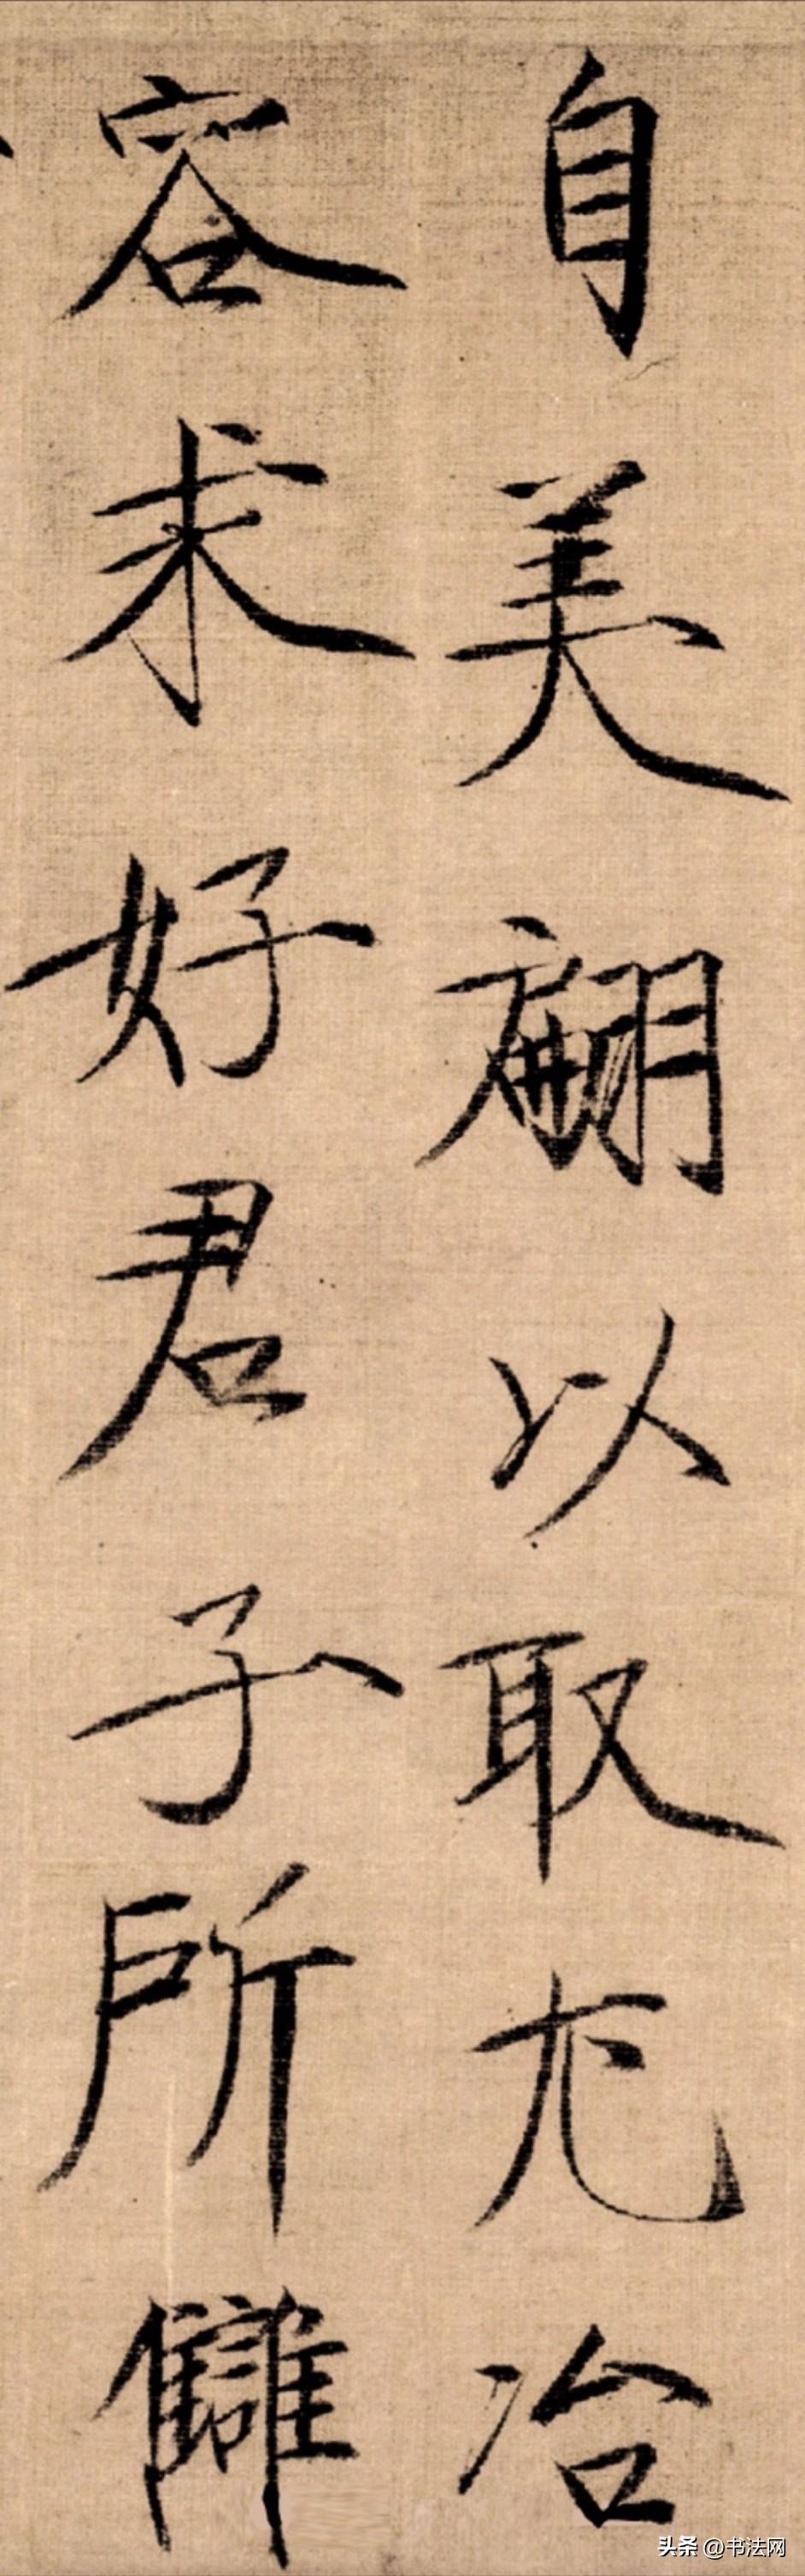 自美翩以取尤冶
容求好君子所讎
头条 @书法网